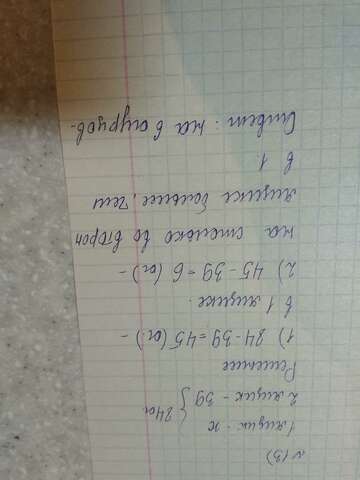 N 13)
1 ящик - х } 84 ог
2 ящик - 39
Решение
1) 84-39=45 (ог.) -
в 1 ящике.
2) 45-39=6 (ог.) -
на столько во втором
ящике больше, чем
в 1
Ответ: на 6 огурцов.